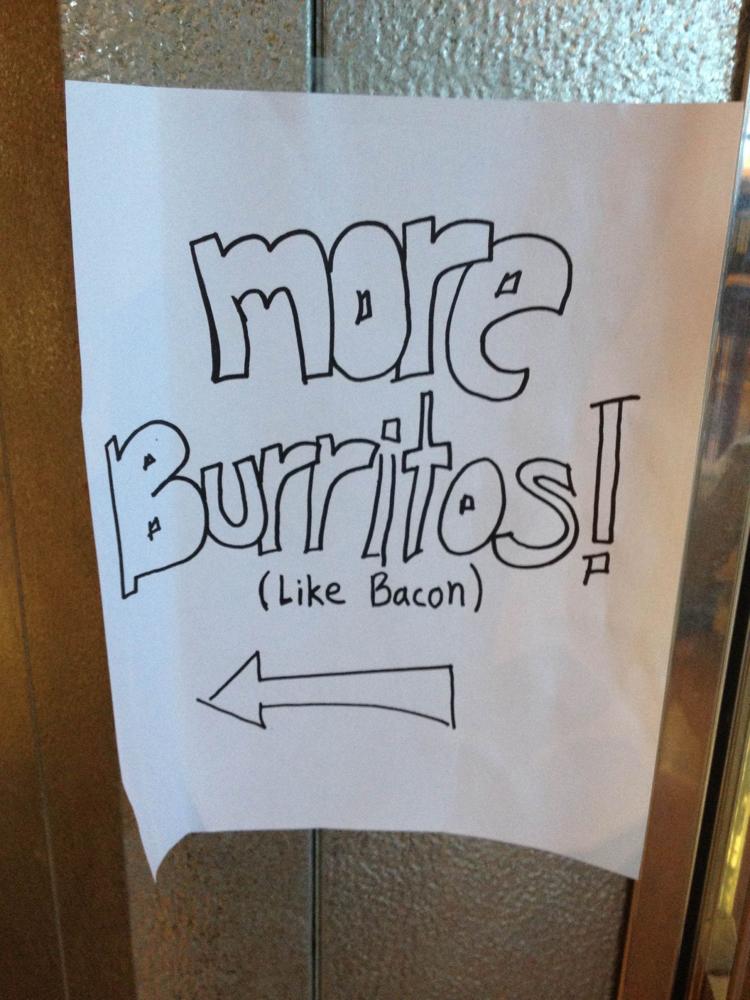 more
Burritos!
(Like Bacon)